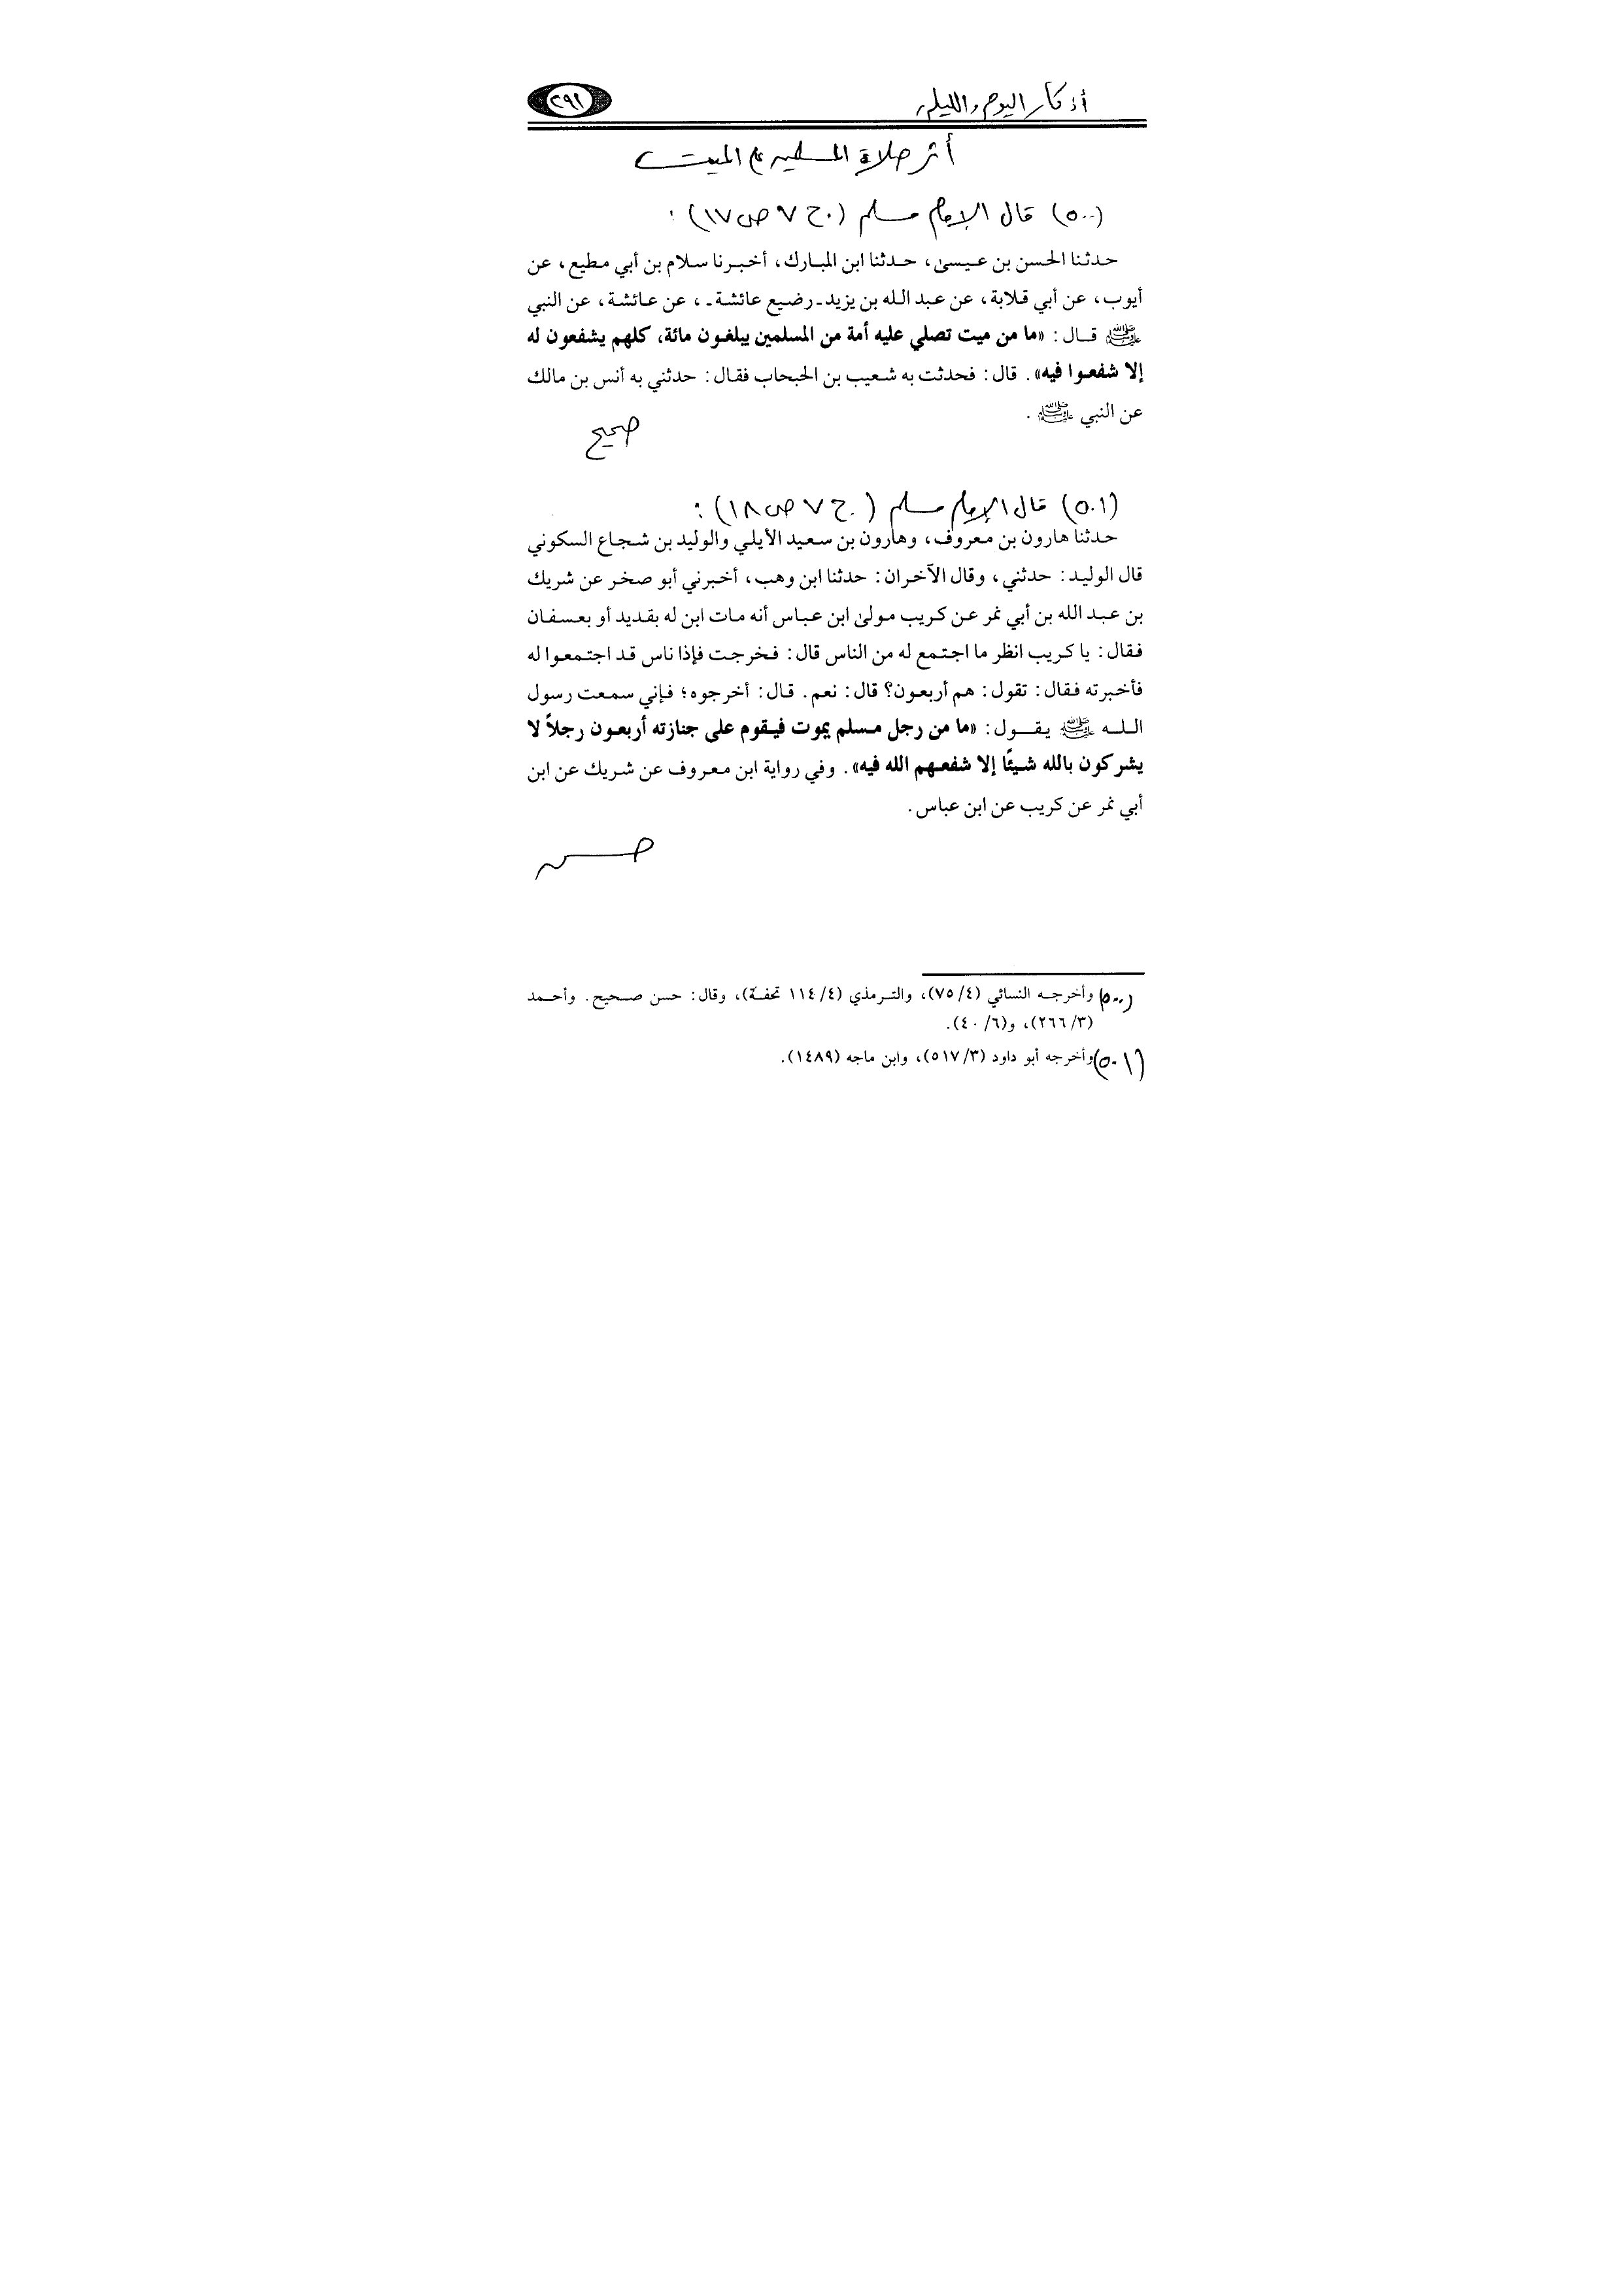 أذكار اليوم والليلة ٣٩١
أثر صلاة المسلمين على الميت
(٥٠٠) قال الإمام مسلم (ج ٧ ص ١٧) :
حدثنا الحسن بن عيسىٰ، حدثنا ابن المبارك، أخبرنا سلام بن أبي مطيع، عن
أيوب، عن أبي قلابة، عن عبد الله بن يزيد ـ رضيع عائشة ـ ، عن عائشة، عن النبي
ﷺ قال : «ما من ميت تصلي عليه أمة من المسلمين يبلغون مائة، كلهم يشفعون له
إلا شفعوا فيه» . قال : فحدثت به شعيب بن الحبحاب فقال : حدثني به أنس بن مالك
عن النبي ﷺ .
صحيح
(٥٠١) قال الإمام مسلم (ج ٧ ص ١٨) :
حدثنا هارون بن معروف، وهارون بن سعيد الأيلي والوليد بن شجاع السكوني
قال الوليد : حدثني، وقال الآخران : حدثنا ابن وهب، أخبرني أبو صخر عن شريك
بن عبد الله بن أبي نمر عن كريب مولىٰ ابن عباس أنه مات ابن له بقديد أو بعسفان
فقال : يا كريب انظر ما اجتمع له من الناس قال : فخرجت فإذا ناس قد اجتمعوا له
فأخبرته فقال : تقول : هم أربعون؟ قال : نعم . قال : أخرجوه؛ فإني سمعت رسول
الله ﷺ يقول : «ما من رجل مسلم يموت فيقوم على جنازته أربعون رجلاً لا
يشركون بالله شيئًا إلا شفعهم الله فيه» . وفي رواية ابن معروف عن شريك عن ابن
أبي نمر عن كريب عن ابن عباس .
حسن
(٥٠٠) وأخرجه النسائي (٧٥/٤)، والترمذي (١١٤/٤ تحفة)، وقال : حسن صحيح . وأحمد
(٢٦٦/٣)، و(٤٠/٦).
(٥٠١) وأخرجه أبو داود (٥١٧/٣)، وابن ماجه (١٤٨٩).